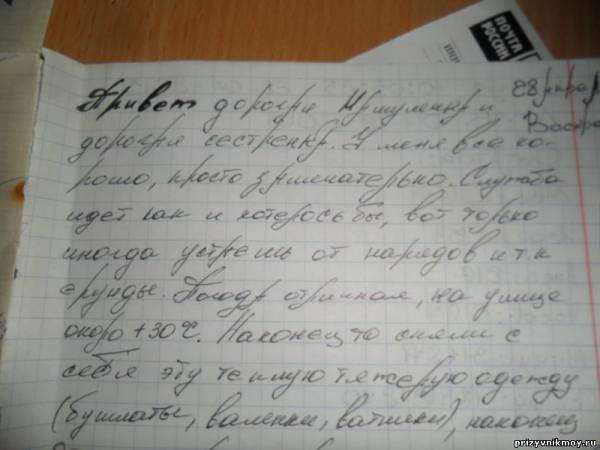 ПОЧТА
РОССИИ
28 апреля
Воскр
Привет дорогая Мамулечка и
дорогая сестренка. У меня все хо-
рошо, просто замечательно. Служба
идет как и хотелось бы, вот только
иногда устаешь от нарядов и т.к
ерунды. Погода отличная, на улице
около +30°C. Наконец то сняли с
себя эту теплую тяжелую одежду
(бушлаты, валенки, ватники), наконец
prizyvnikmoy.ru